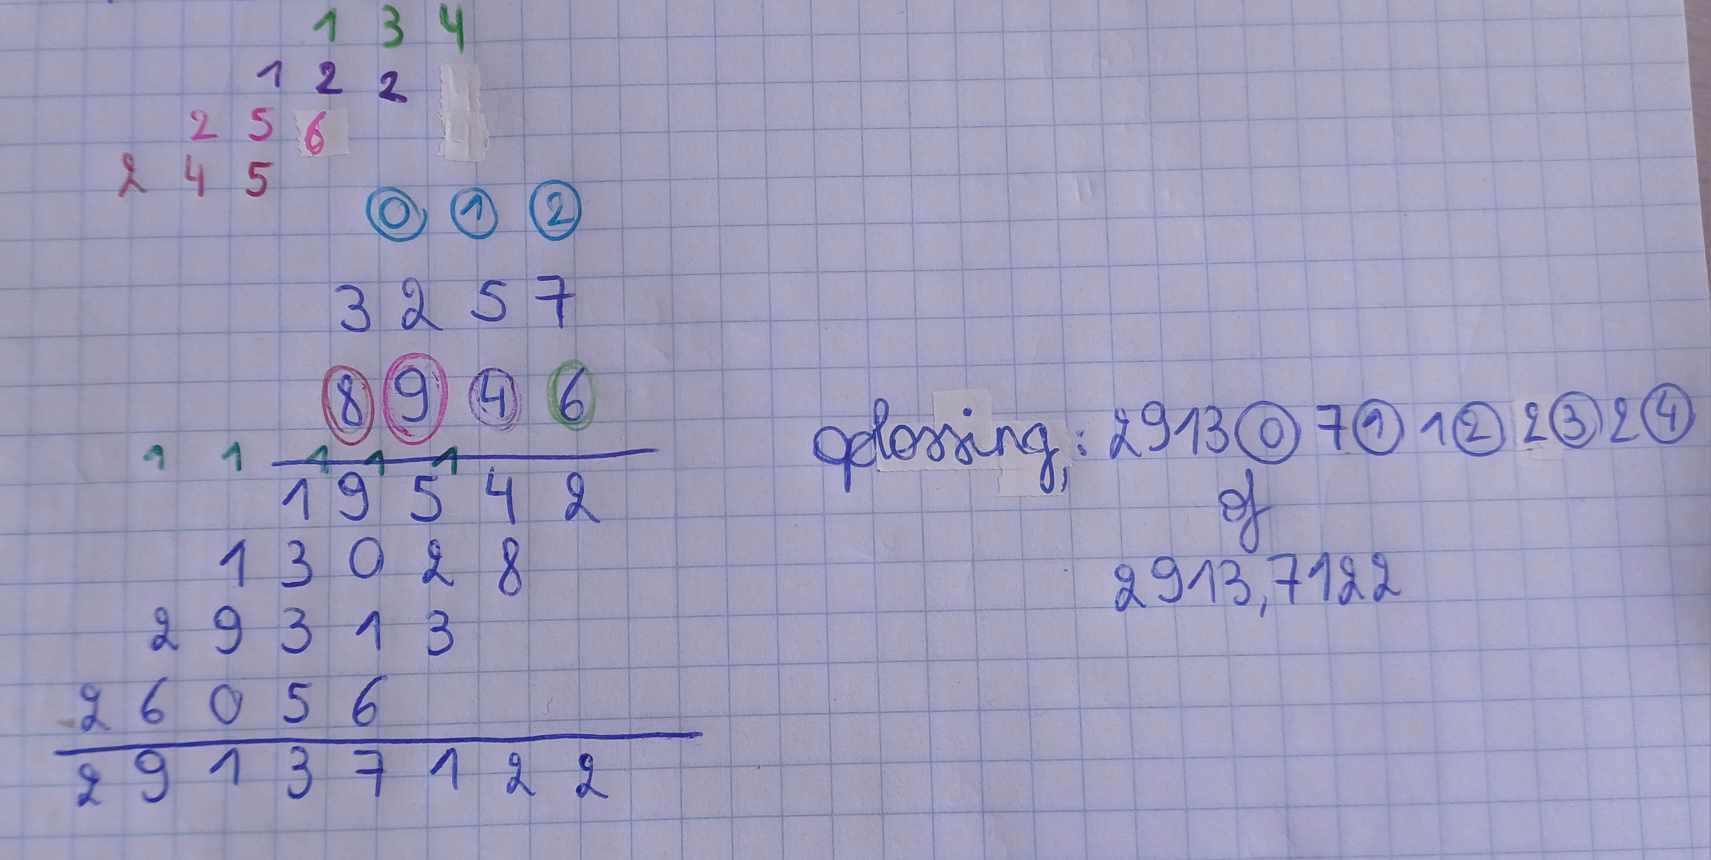 1 3 4
1 2 2
2 5 6
2 4 5
⓪ ① ②
3 2 5 7
⑧ ⑨ ④ ⑥
1 1 1 1 1
1 9 5 4 2
1 3 0 2 8
2 9 3 1 3
2 6 0 5 6
2 9 1 3 7 1 2 2
oplossing: 2913⓪7①1②2③2④
of
2913,7122